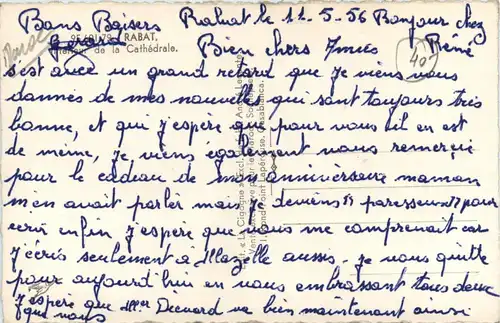 Bons Baisers Rabat le 11-5-56 Bonjour chez
Gérard René
95.401.79 - RABAT.
de la Cathédrale.
Maroc
40
Bien chers Amis
s'est avec un grand retard que je viens vous
donnés de mes nouvelles qui sont toujours très
bonne, et qui j'espère que pour vous il en est
de même, je viens également vous remercié
pour le cadeau de mon anniversaire maman
m'en avait parler mais je deviens si paresseux pour
ecrir enfin j'espère que vous me comprenait car
j'écris seulement à aussi je vous quitte
pour aujourd'hui en vous embrassant tous deux
j'espère que Mer va bien maintenant ainsi
que vous
Edit. « La Cigogne »
Casablanca.